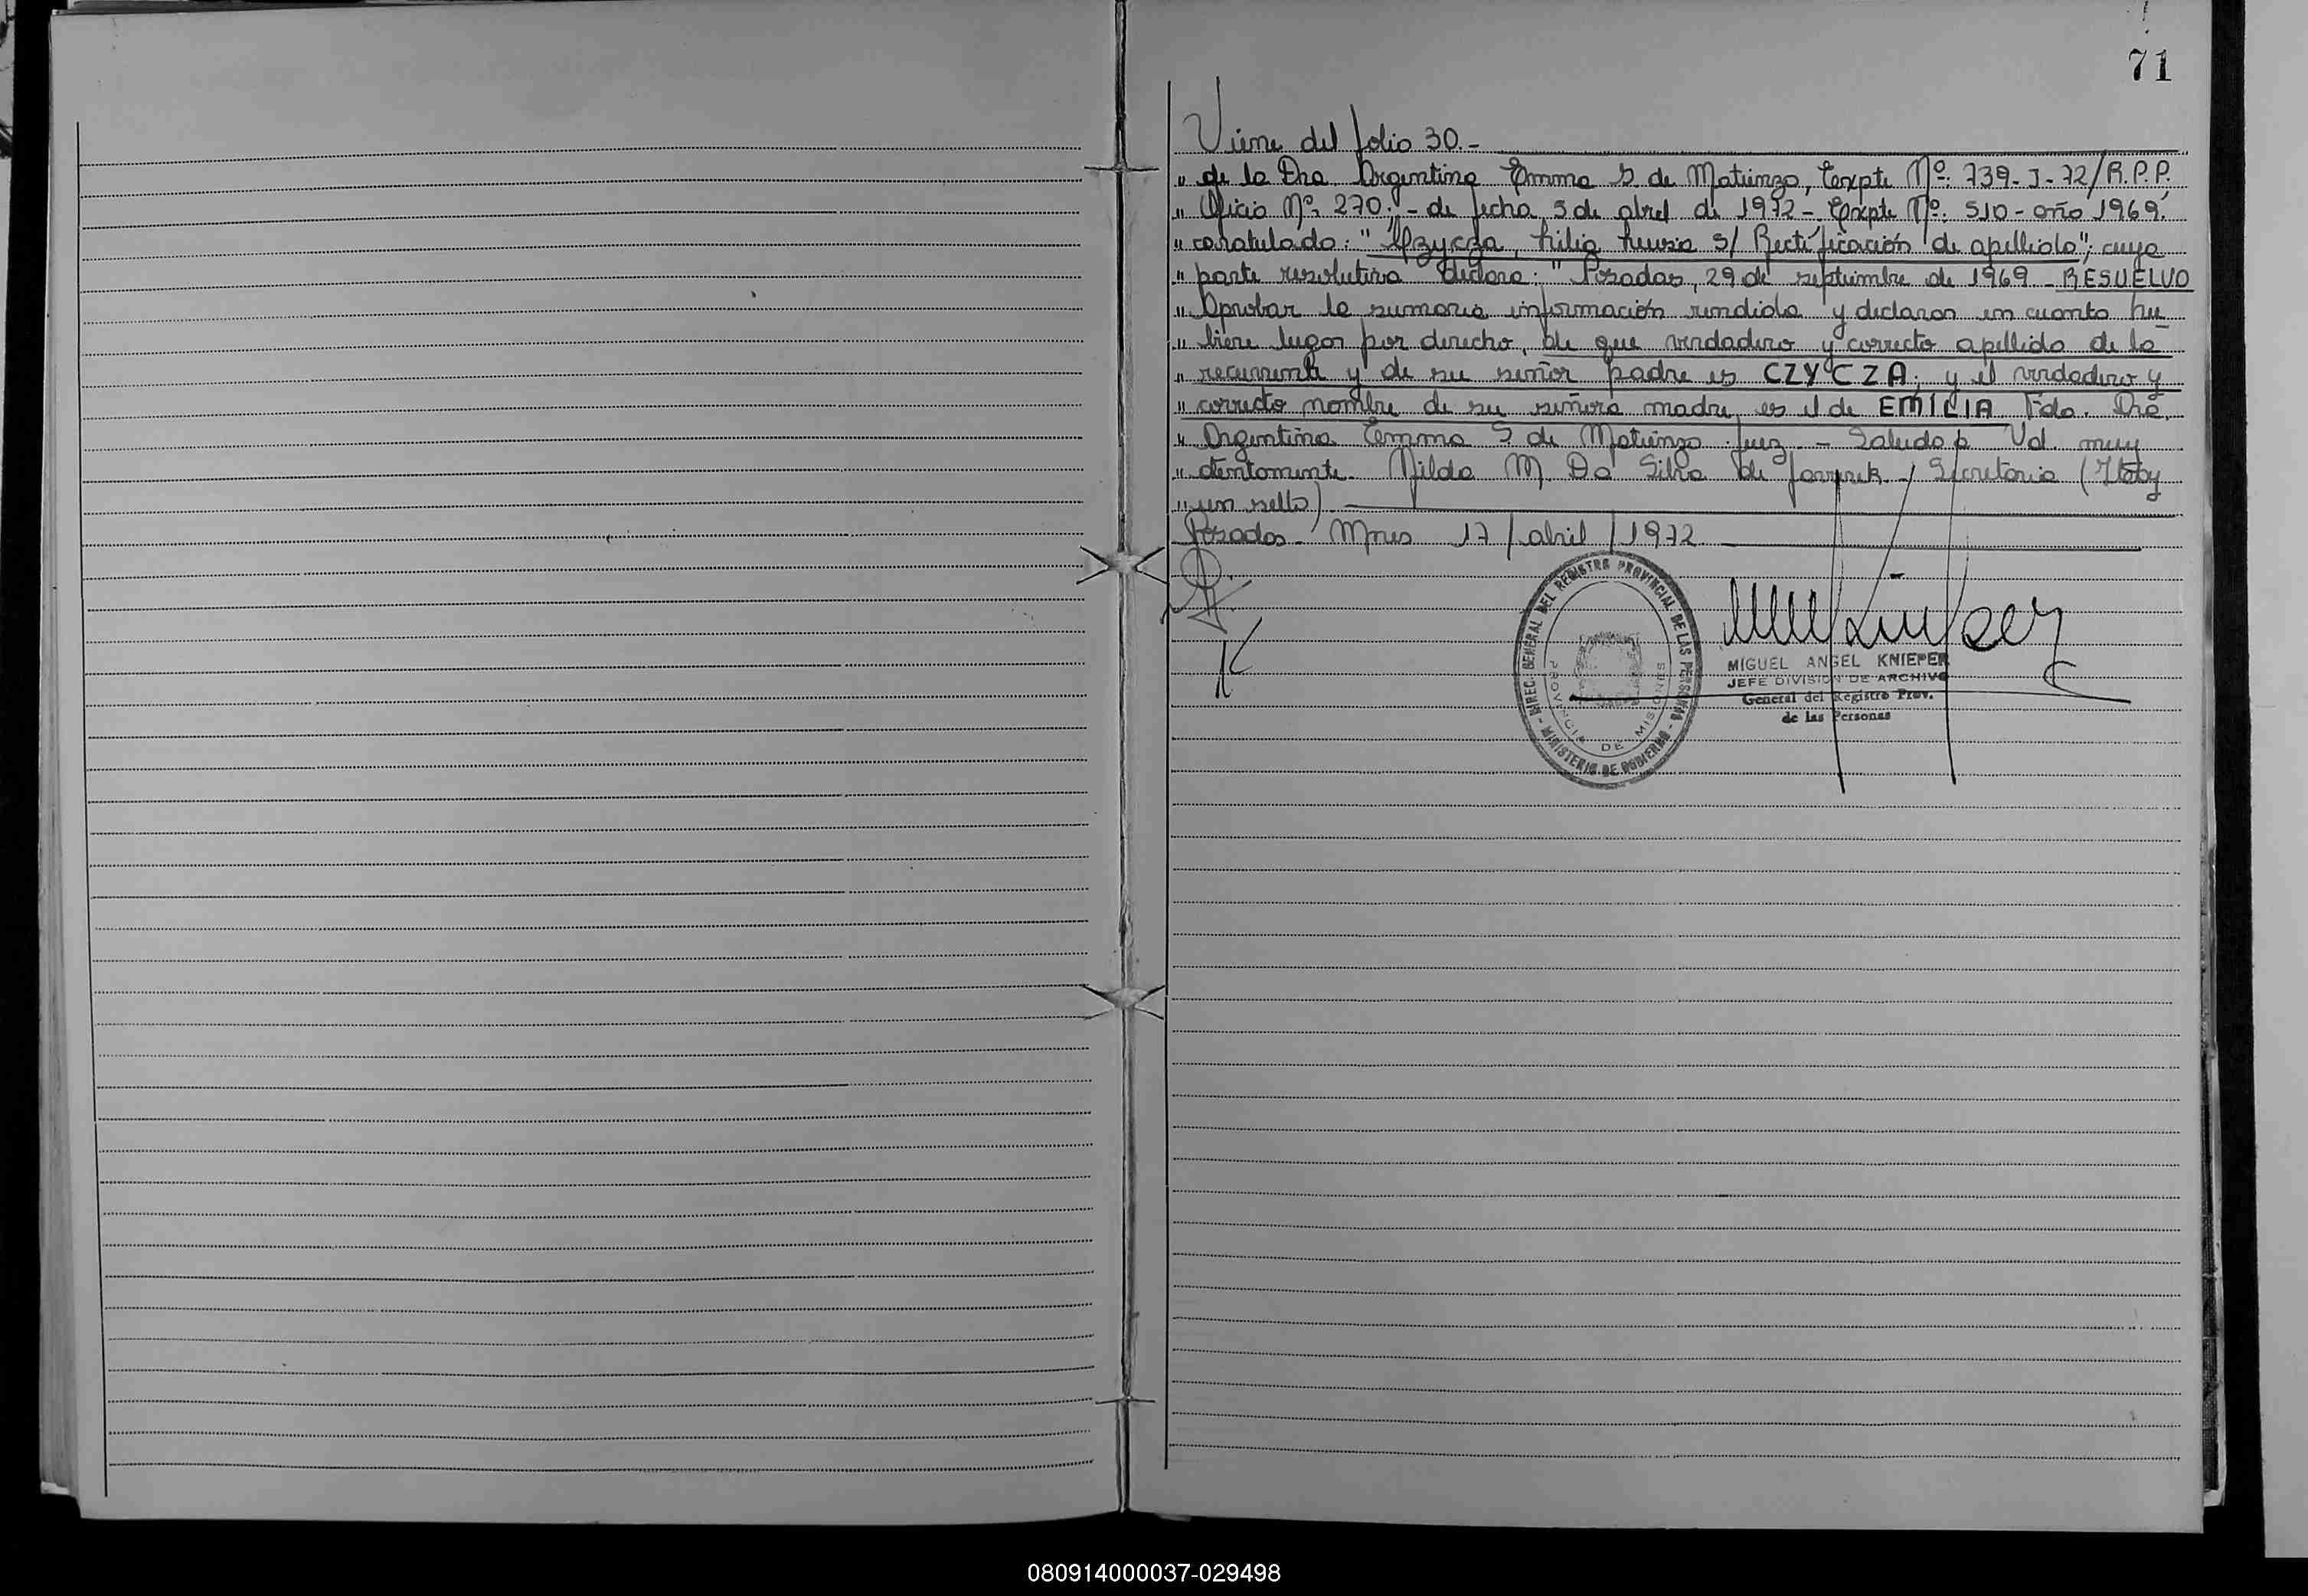 71
Viene del folio 30.-
" de la Dra Argentina Emma S de Matienzo, Expte Nº: 739-J-72/R.P.P.
" Oficio Nº 270:- de fecha 5 de abril de 1972- Expte Nº: 510-año 1969.
" caratulado: " Lidia s/ Rectificación de apellido"; cuya
" parte resolutiva declara: " Posadas, 29 de septiembre de 1969 - RESUELVO
" Aprobar la sumaria información rendida y declarar en cuanto hu_
" biere lugar por derecho, de que verdadero y correcto apellido de la
" recurrente y de su señor padre es CZYCZA; y el verdadero y
" correcto nombre de su señora madre, es el de EMILIA Fdo. Dra.
" Argentina Emma S de Matienzo. Juez - Saludo a Ud. muy
" atentamente. Nilda M Da Silva de - Secretaria (Hay
" un sello)
Posadas Mnes 17/abril/1972
DIREC. GENERAL DEL REGISTRO PROVINCIAL DE LAS PERSONAS - MINISTERIO DE GOBIERNO -
PROVINCIA DE MISIONES
MIGUEL ANGEL KNIEPER
JEFE DIVISION DE ARCHIVO
General del Registro Prov.
de las Personas
080914000037-029498